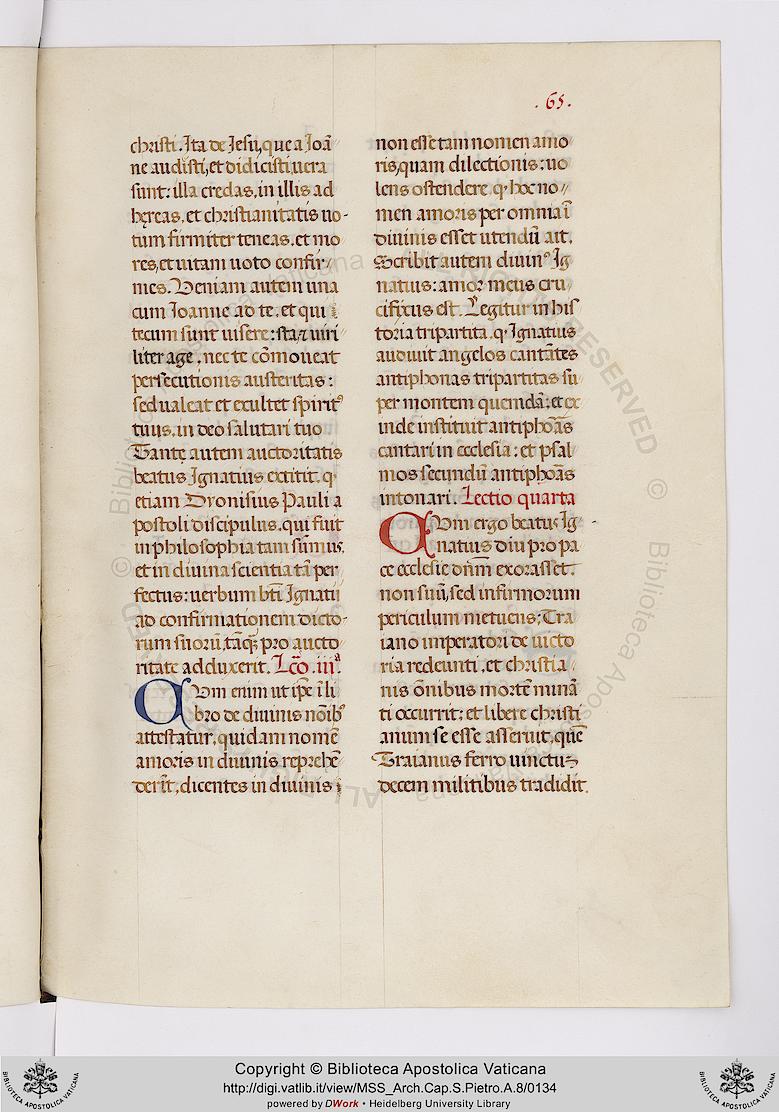 .65.
christi. Ita de Jesu, que a Joā
ne audisti, et didicisti, uera
sunt: illa credas, in illis ad
hęreas, et christianitatis uo-
tum firmiter teneas, et mo
res, et uitam uoto confir/
mes. Veniam autem una
cum Joanne ad te, et qui
tecum sunt uisere: sta, et uiri
liter age, nec te cōmoueat
persecutionis austeritas:
sed ualeat et exultet spiritꝰ
tuus, in deo salutari tuo
Tantę autem auctoritatis
beatus Ignatius extitit. ꝙ
etiam Dionisius Pauli a
postoli discipulus, qui fuit
in philosophia tam sūmus,
et in diuina scientia tā per
fectus: uerbum btī Ignatii
ad confirmationem dicto-
rum suorū, tāqȝ pro aucto
ritate adduxerit. Lc̄o. iiiᵃ
Cum enim ut ipē ī li
bro de diuinis noībꝰ
attestatur, quidam nomē
amoris in diuinis reprehē
derīt, dicentes in diuinis
non esse tam nomen amo
ris, quam dilectionis: uo
lens ostendere ꝙ hoc no/
men amoris per omnia ī
diuinis esset utendū ait.
Scribit autem diuinꝰ Ig
natius: amor meus cru
cifixus est. Legitur in his
toria tripartita ꝙ Ignatius
audiuit angelos cantātes
antiphonas tripartitas su
per montem quemdā: et ex
inde instituit antiphoās
cantari in ecclesia: et psal
mos secundū antiphoās
intonari. Lectio quarta
Cum ergo beatus Ig
natius diu pro pa
ce ecclesie dn̄m exorasset:
non suū, sed infirmorum
periculum metuens: Tra
iano imperatori de uicto
ria redeunti, et christia/
nis ōnibus mortē minā
ti occurrit: et libere christi
anum se esse asseruit, quē
Traianus ferro uinctuȝ
decem militibus tradidit.
© Biblioteca Apostolica Vaticana
ALL RIGHTS RESERVED
Copyright © Biblioteca Apostolica Vaticana
http://digi.vatlib.it/view/MSS_Arch.Cap.S.Pietro.A.8/0134
powered by DWork • Heidelberg University Library
BIBLIOTECA APOSTOLICA VATICANA
BIBLIOTECA APOSTOLICA VATICANA